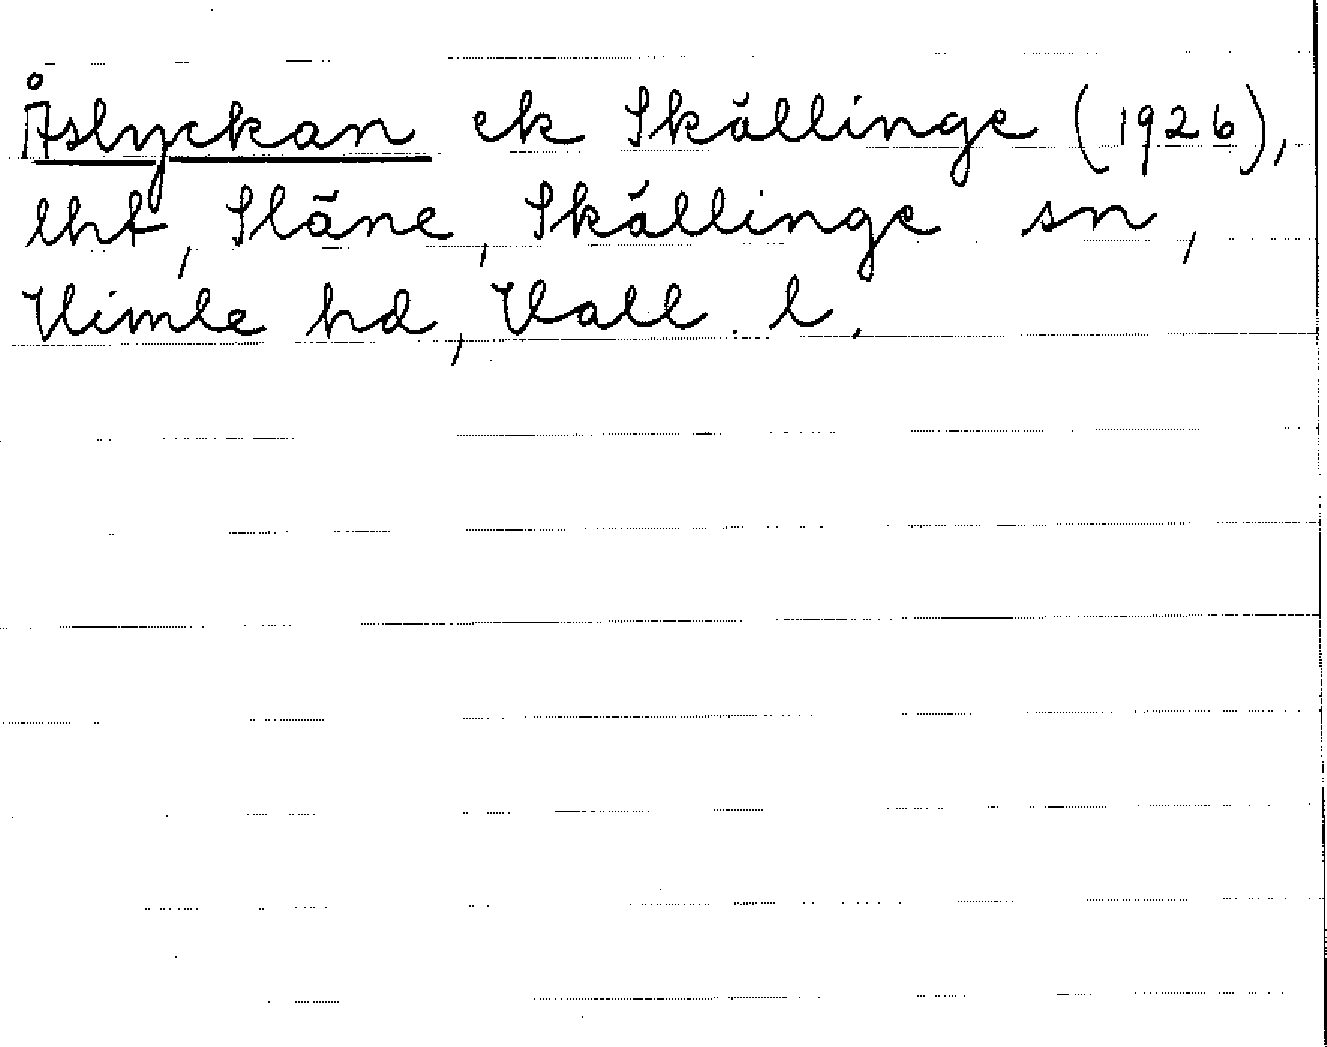 Åslyckan ek Skällinge (1926),
lht, Släne, Skällinge sn,
Himle hd, Hall. l.